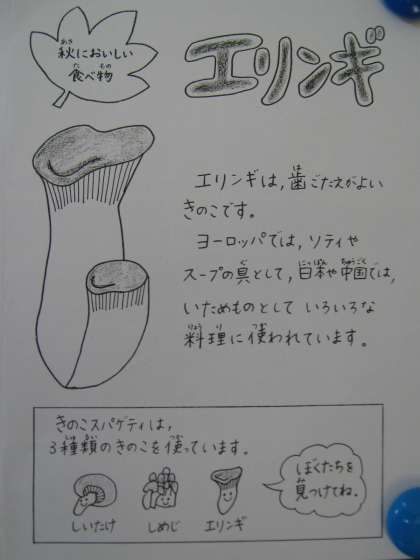 秋においしい
食べ物
エリンギ
エリンギは,歯ごたえがよい
きのこです。
ヨーロッパでは,ソティや
スープの具として,日本や中国では,
いためものとして いろいろな
料理に使われています。
きのこスパゲティは,
3種類のきのこを使っています。
しいたけ しめじ エリンギ
ぼくたちを
見つけてね。